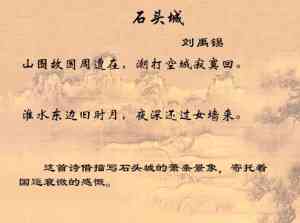 石头城
刘禹锡
山围故国周遭在，潮打空城寂寞回。
淮水东边旧时月，夜深还过女墙来。
这首诗借描写石头城的萧条景象，寄托着
国运衰微的感慨。